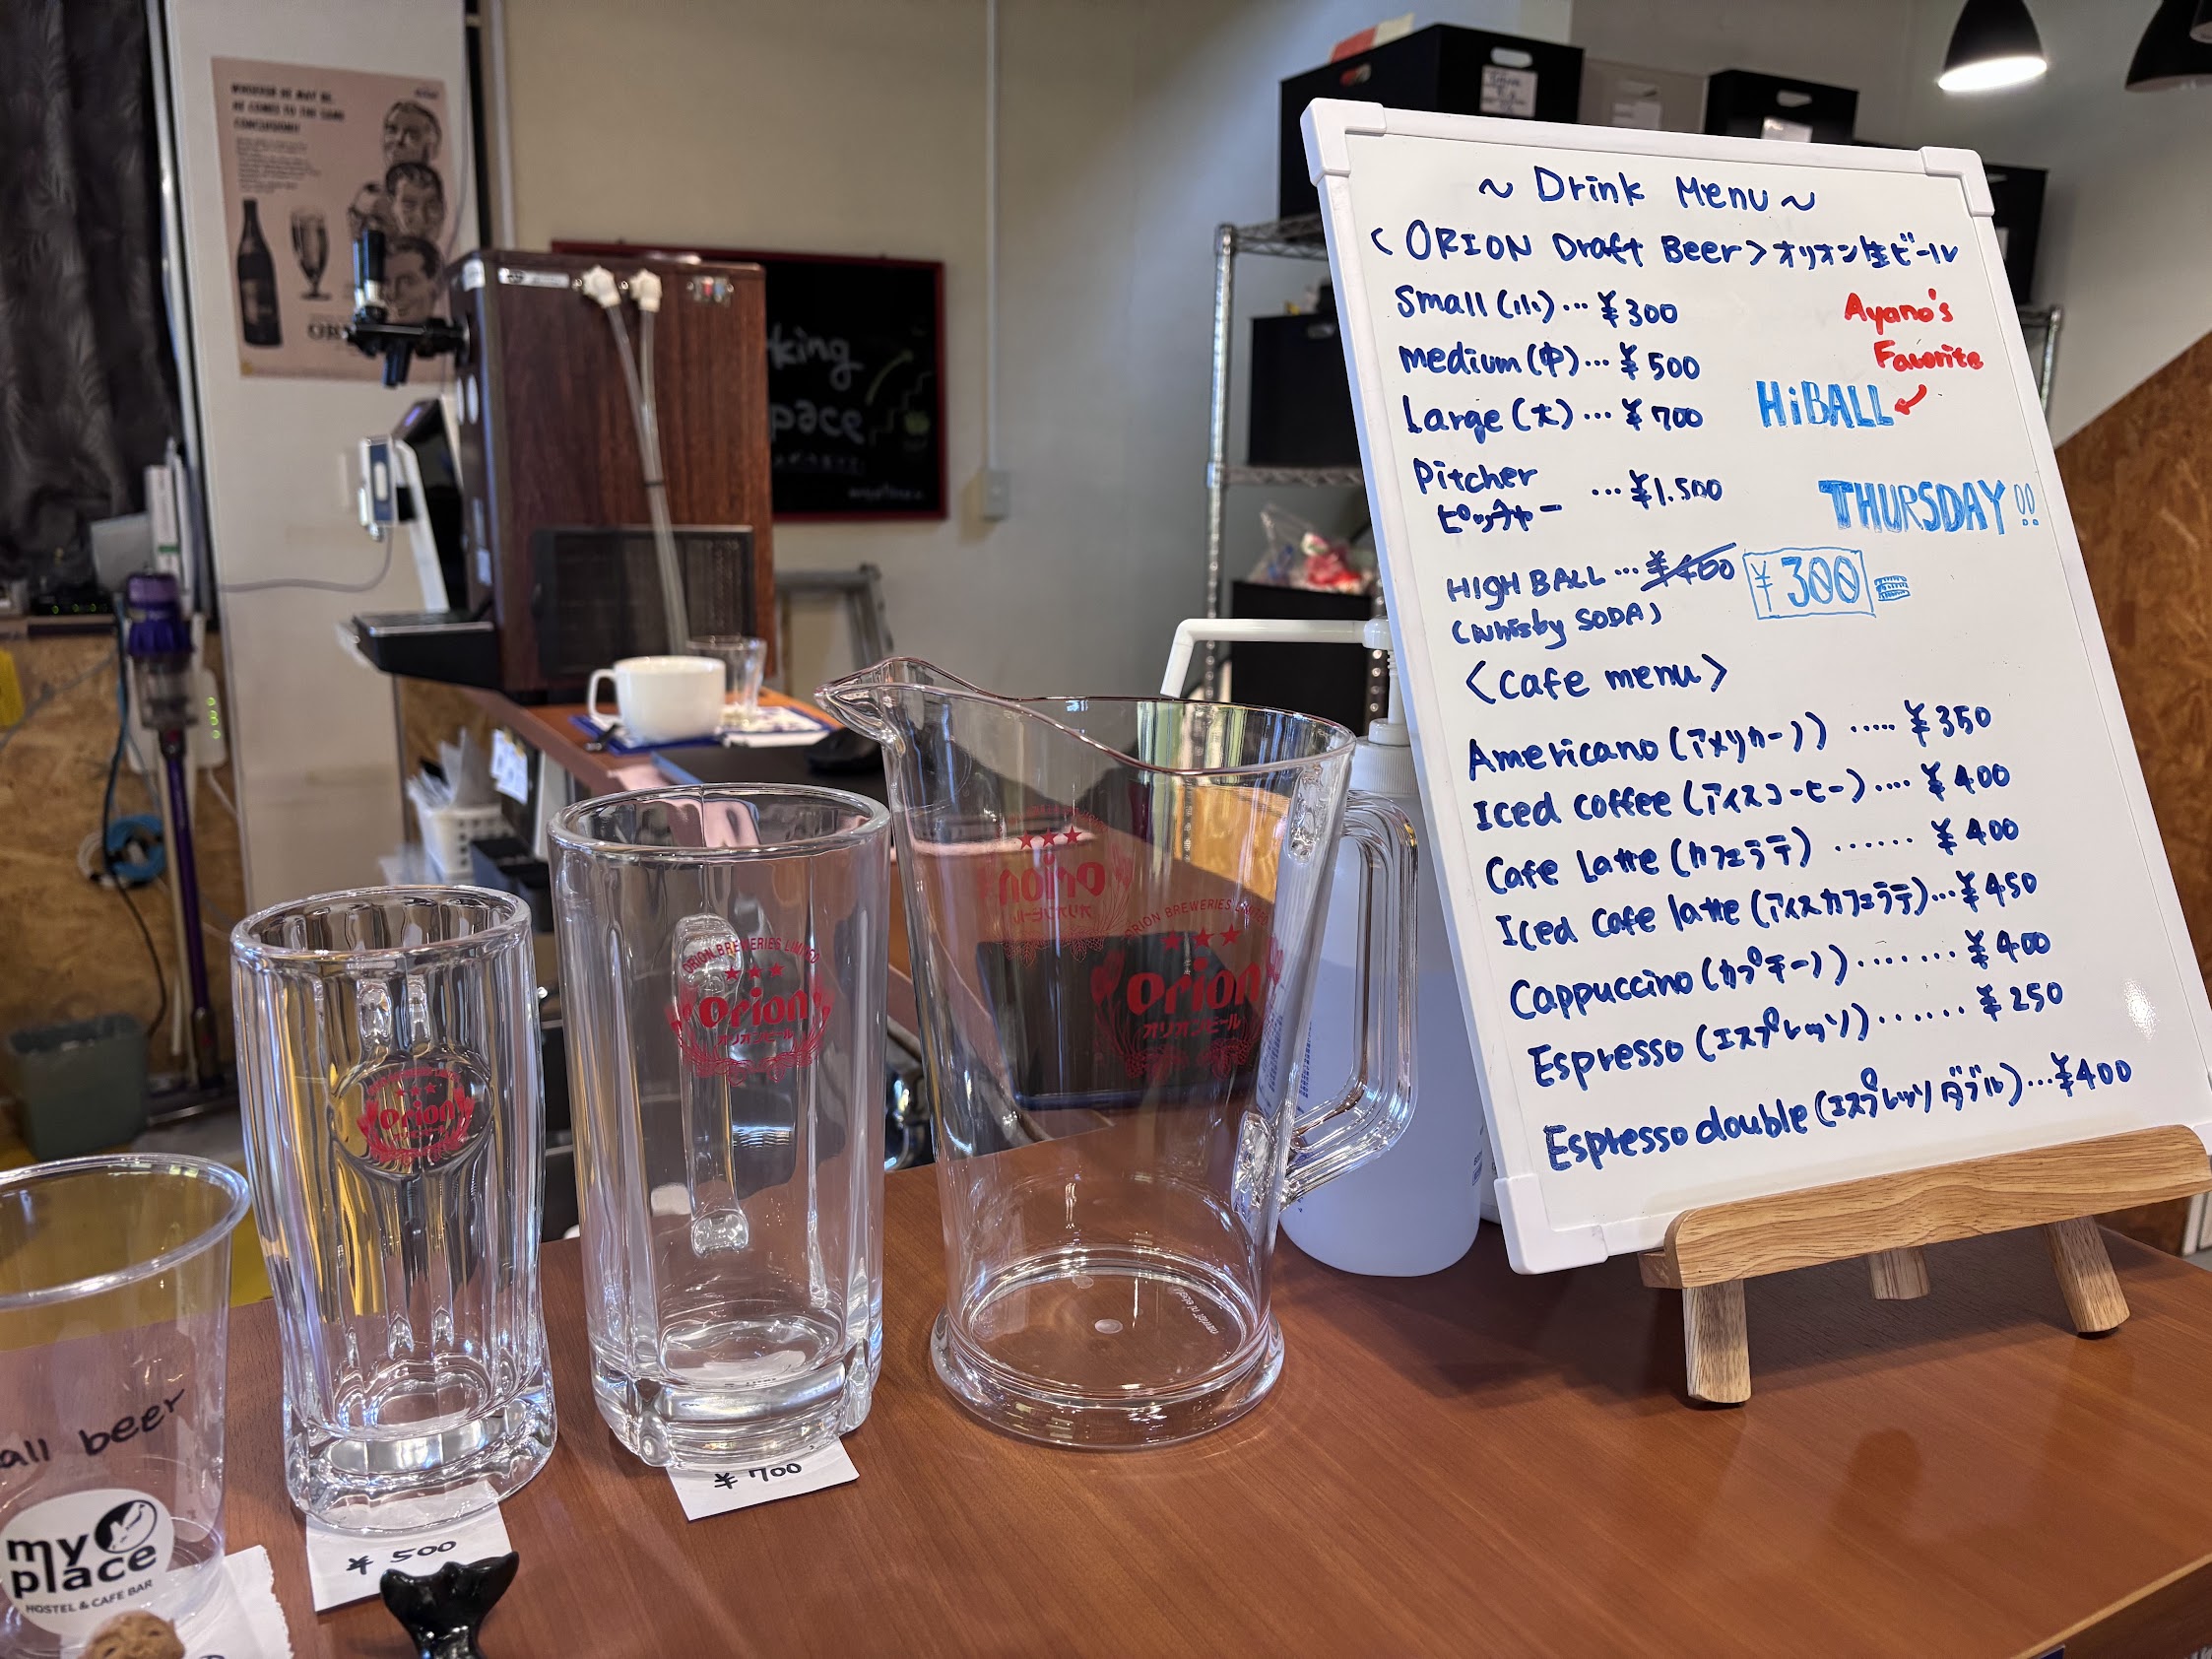 ~ Drink Menu ~
<ORION Draft Beer> オリオン生ビール
Small (小) ... ¥300
medium (中) ... ¥500
Large (大) ... ¥700
Pitcher ... ¥1.500
ピッチャー
HIGH BALL ... ¥400 ¥300
(Whisby SODA)
Ayano's
Favorite
HiBALL
THURSDAY!!
<Cafe menu>
Americano (アメリカーノ) ..... ¥350
Iced coffee (アイスコーヒー) .... ¥400
Cafe Latte (カフェラテ) ...... ¥400
Iced Cafe latte (アイスカフェラテ) ... ¥450
Cappuccino (カプチーノ) ....... ¥400
Espresso (エスプレッソ) ...... ¥250
Espresso double (エスプレッソダブル) ... ¥400
WHOEVER HE MAY BE,
HE COMES TO THE SAME
CONCLUSION!
king
pace
ORION BREWERIES LIMITED
orion
オリオンビール
ORION BREWERIES LIMITED
orion
オリオンビール
orion
オリオンビール
orion
¥700
¥500
all beer
my
place
HOSTEL & CAFE BAR